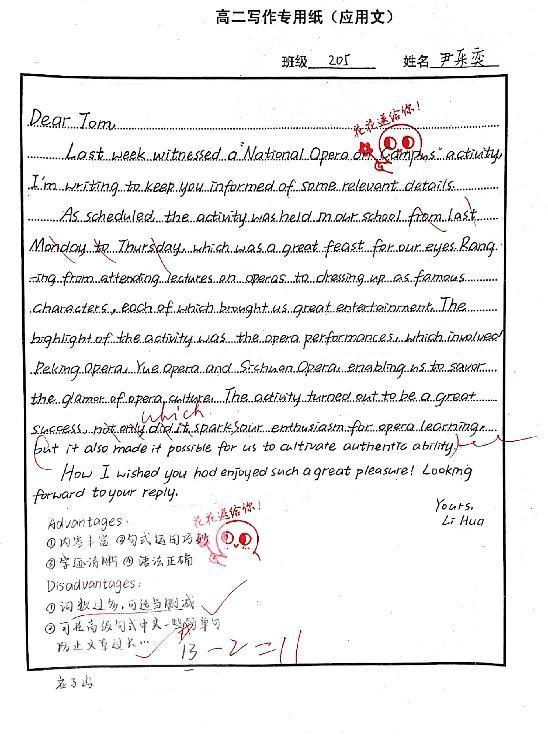 高二写作专用纸（应用文）
班级 205 姓名 尹乐奕
Dear Tom,
花花送给你！
Last week witnessed a "National Opera on Campus" activity,
I'm writing to keep you informed of some relevant details.
As scheduled, the activity was held in our school from last
Monday to Thursday, which was a great feast for our eyes. Rang
-ing from attending lectures on operas to dressing up as famous
characters, each of which brought us great entertainment. The
highlight of the activity was the opera performances, which involved
Peking Opera, Yue Opera and Sichuan Opera, enabling us to savor
the glamor of opera culture. The activity turned out to be a great
which
success, not only did it spark our enthusiasm for opera learning,
but it also made it possible for us to cultivate authentic ability.
How I wished you had enjoyed such a great pleasure! Looking
forward to your reply.
Yours,
Li Hua
花花送给你！
Advantages:
①内容丰富 ②句式运用巧妙
③字迹清晰 ④语法正确
Disadvantages:
①词数过多,可适当删减
②可在高级句式中夹一些简单句
防止文章过长...
13 -2=11